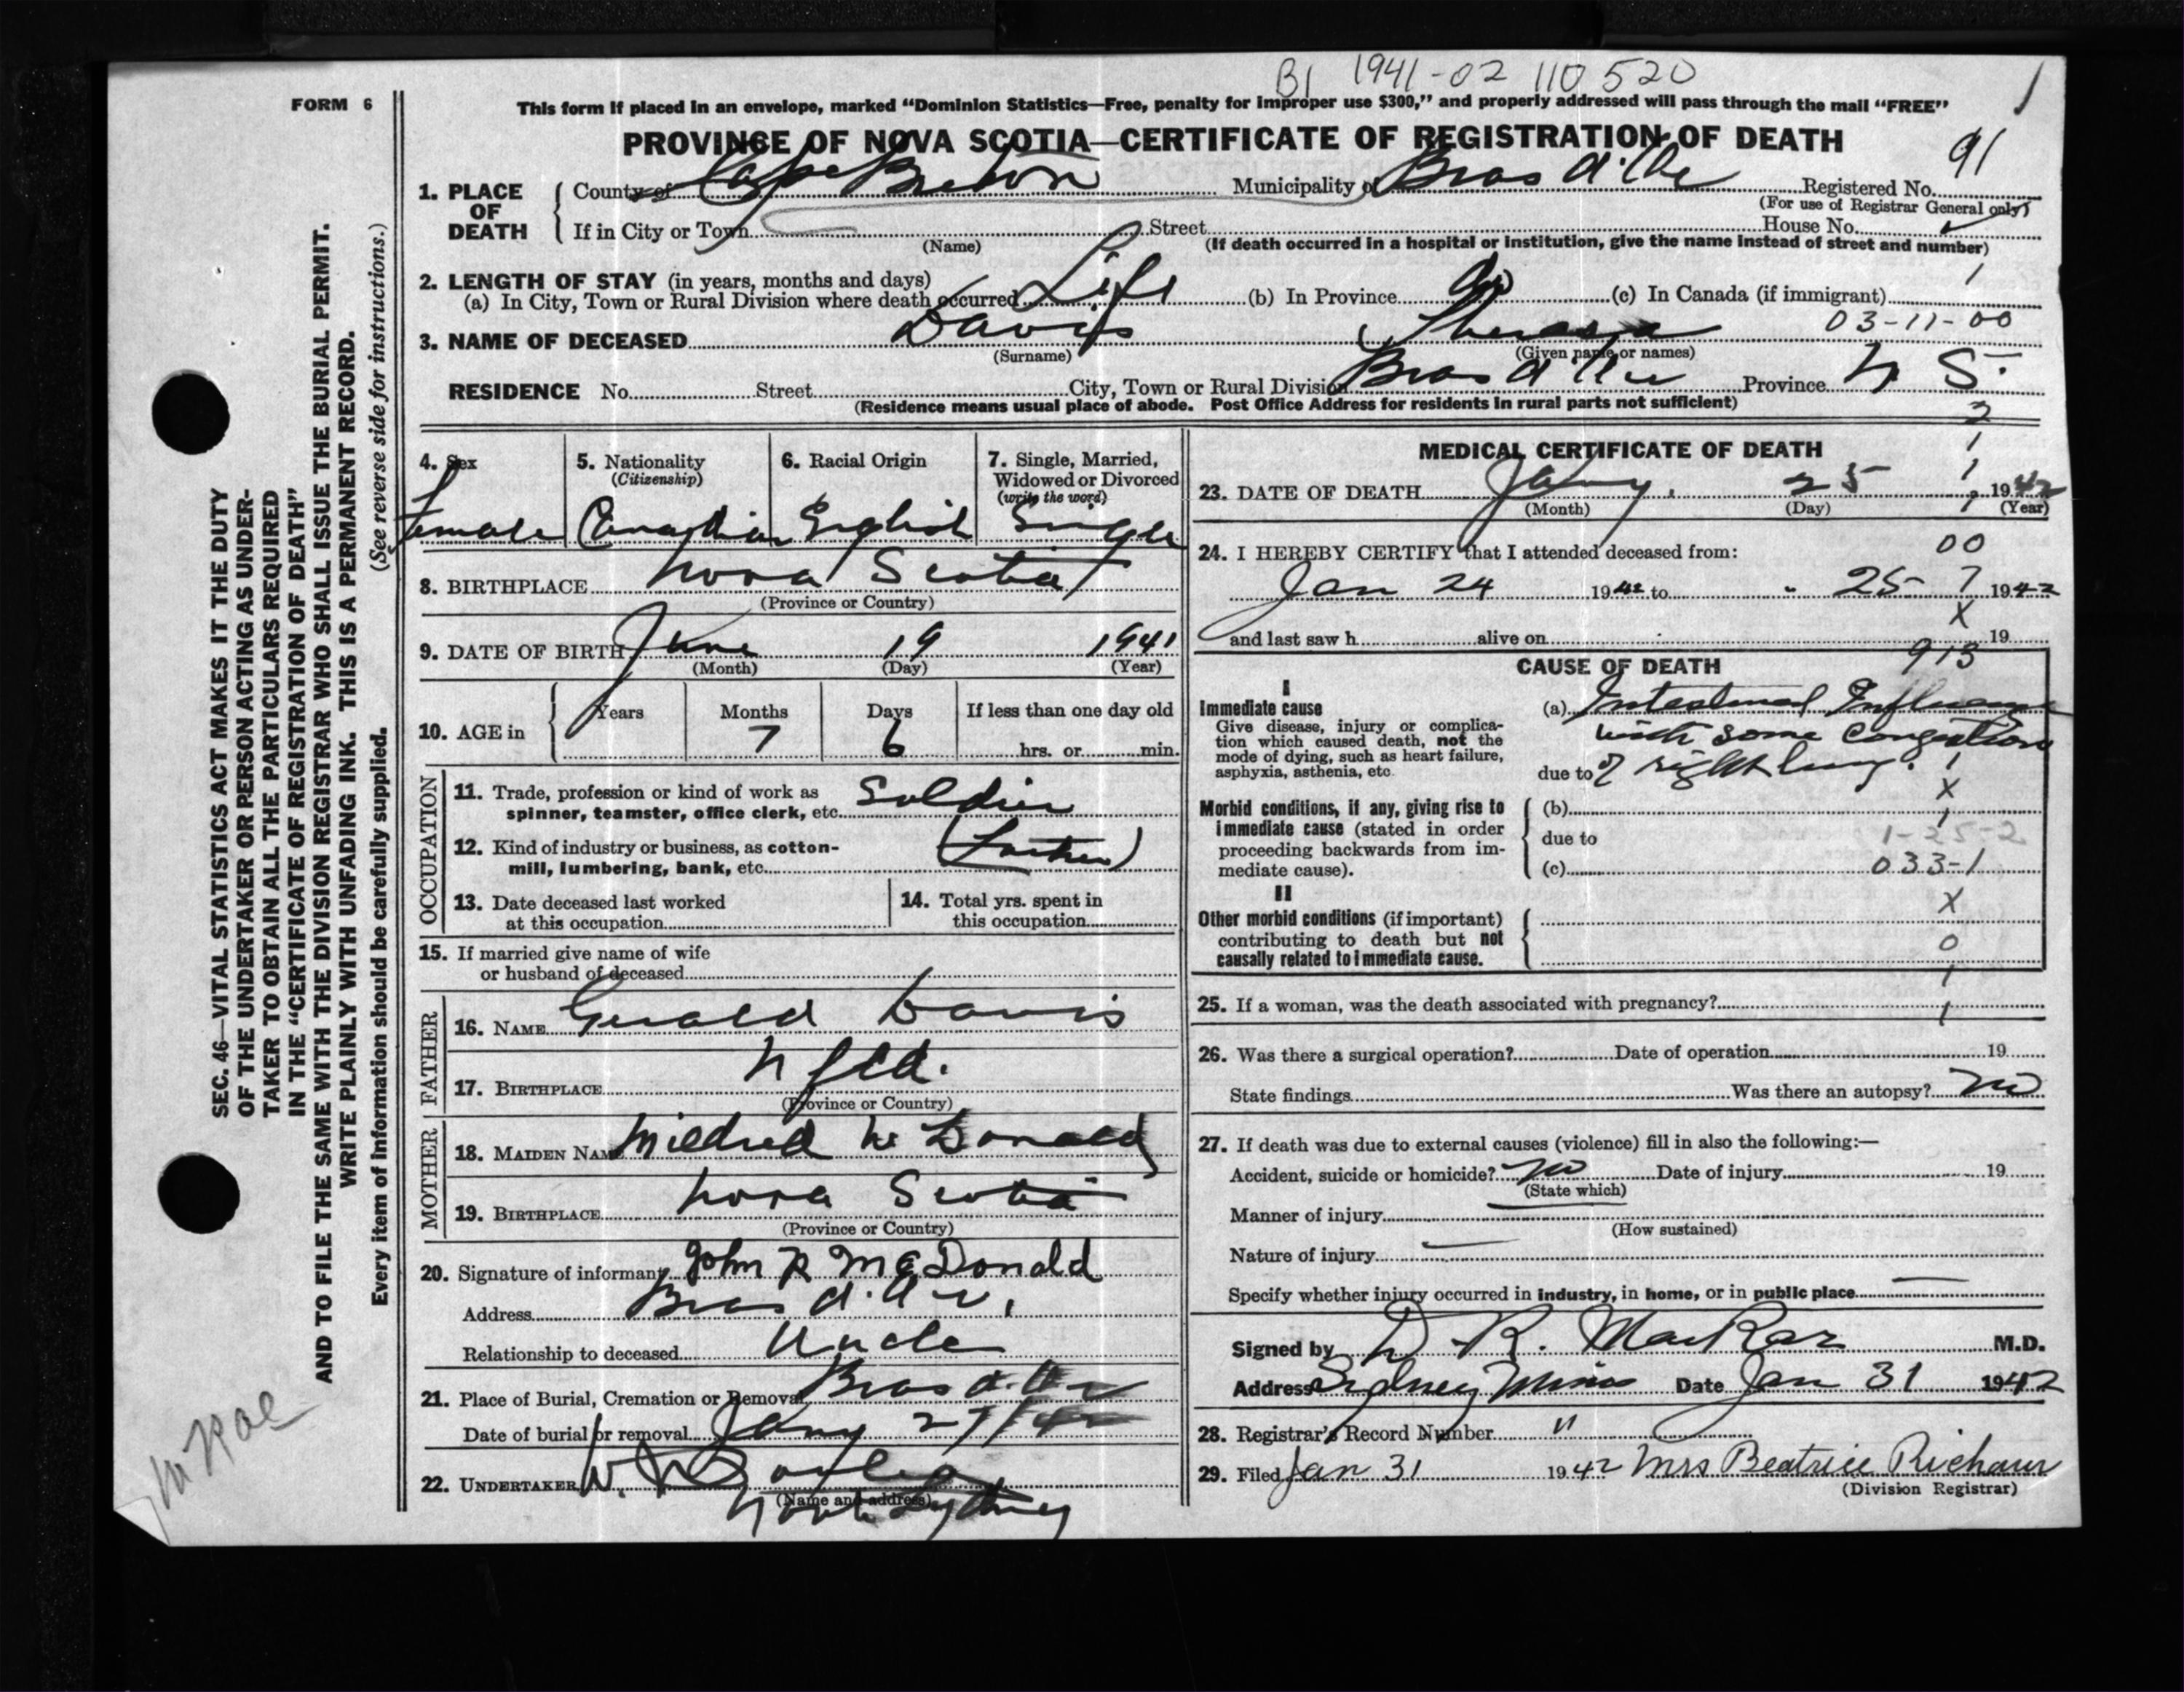 B1 1941-02 110 520
1
FORM 6
This form if placed in an envelope, marked “Dominion Statistics—Free, penalty for improper use $300,” and properly addressed will pass through the mail “FREE”
PROVINCE OF NOVA SCOTIA—CERTIFICATE OF REGISTRATION OF DEATH
91
1. PLACE OF DEATH
County of Cape Breton Municipality of Bras d'Or Registered No.
(For use of Registrar General only)
If in City or Town Street House No.
(Name) (If death occurred in a hospital or institution, give the name instead of street and number)
2. LENGTH OF STAY (in years, months and days)
1
(a) In City, Town or Rural Division where death occurred Life (b) In Province (c) In Canada (if immigrant)
03-11-00
3. NAME OF DECEASED Davis Theresa
(Surname) (Given name or names)
RESIDENCE No. Street City, Town or Rural Division Bras d'Or Province N S.
(Residence means usual place of abode. Post Office Address for residents in rural parts not sufficient)
4. Sex 5. Nationality 6. Racial Origin 7. Single, Married,
(Citizenship) Widowed or Divorced
(write the word)
Female Canadian English Single
8. BIRTHPLACE Nova Scotia
(Province or Country)
9. DATE OF BIRTH June 19 1941
(Month) (Day) (Year)
10. AGE in Years Months Days If less than one day old
7 6 hrs. or min.
OCCUPATION
11. Trade, profession or kind of work as
spinner, teamster, office clerk, etc. Soldier
12. Kind of industry or business, as cotton-
mill, lumbering, bank, etc. (Father)
13. Date deceased last worked
at this occupation
14. Total yrs. spent in
this occupation
15. If married give name of wife
or husband of deceased
FATHER
16. NAME Gerald Davis
17. BIRTHPLACE Nfld.
(Province or Country)
MOTHER
18. MAIDEN NAME Mildred McDonald
19. BIRTHPLACE Nova Scotia
(Province or Country)
20. Signature of informant John R McDonald
Address Bras d'Or,
Relationship to deceased Uncle
21. Place of Burial, Cremation or Removal Bras d'Or
Date of burial or removal Jany 27/42
22. UNDERTAKER W.
(Name and address)
North Sydney
2
1
MEDICAL CERTIFICATE OF DEATH
1
23. DATE OF DEATH Jany. 25 1942
(Month) (Day) (Year)
1
24. I HEREBY CERTIFY that I attended deceased from: 00
Jan 24 1942 to " 25 7 1942
X
and last saw h alive on 19
913
CAUSE OF DEATH
I
Immediate cause
Give disease, injury or complica-
tion which caused death, not the
mode of dying, such as heart failure,
asphyxia, asthenia, etc.
(a) Intestinal Influenza
with some congestion
due to of right lung. 1
X
Morbid conditions, if any, giving rise to
immediate cause (stated in order
proceeding backwards from im-
mediate cause).
(b)
1
due to 1-25-2
(c) 033-1
II
X
Other morbid conditions (if important)
contributing to death but not
causally related to immediate cause.
0
1
25. If a woman, was the death associated with pregnancy?
1
26. Was there a surgical operation? Date of operation 19
State findings Was there an autopsy? no
27. If death was due to external causes (violence) fill in also the following:—
Accident, suicide or homicide? no Date of injury 19
(State which)
Manner of injury
(How sustained)
Nature of injury
Specify whether injury occurred in industry, in home, or in public place
Signed by D. R. MacRae M.D.
Address Sydney Mines Date Jan 31 1942
28. Registrar's Record Number "
29. Filed Jan 31 1942 Mrs Beatrice
(Division Registrar)
SEC. 46—VITAL STATISTICS ACT MAKES IT THE DUTY
OF THE UNDERTAKER OR PERSON ACTING AS UNDER-
TAKER TO OBTAIN ALL THE PARTICULARS REQUIRED
IN THE “CERTIFICATE OF REGISTRATION OF DEATH”
AND TO FILE THE SAME WITH THE DIVISION REGISTRAR WHO SHALL ISSUE THE BURIAL PERMIT.
WRITE PLAINLY WITH UNFADING INK. THIS IS A PERMANENT RECORD.
Every item of information should be carefully supplied. (See reverse side for instructions.)
McRae